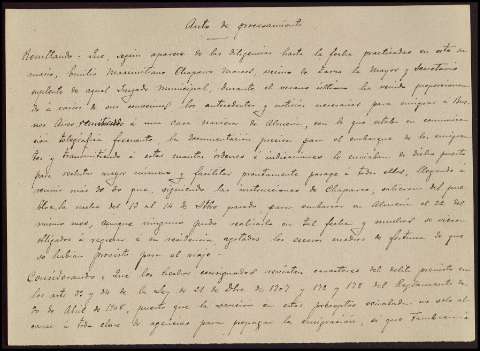 Auto de procesamiento
Resultando - Que, según aparece de las diligencias hasta la fecha practicadas en este su-
mario, Emilio Maximiliano Chaparro Marcos, vecino de Zarza la Mayor y Secretario
suplente de aquel Juzgado Municipal, durante el verano último ha venido proporcionan-
do á varios de sus convecinos los antecedentes y noticias necesarias para emigrar á Bue-
nos Aires, á una casa naviera de Almería, con la que estaba en comunica-
ción telegráfica frecuente, la documentación precisa para el embarque de los emigran-
tes y transmitiendo á estos cuantas órdenes é indicaciones le enviaban de dicho puerto
para reclutar mayor número y facilitar prontamente pasage á todos ellos, llegando á
reunir más de do que, siguiendo las instrucciones de Chaparro, salieron del pue-
blo, la noche del 13 al 14 de Stbre pasado para embarcar en Almería el 22 del
mismo mes, aunque ninguno pudo realizarlo en tal fecha y muchos se vieron
obligados á regresar á su residencia, agotados los escasos medios de fortuna de que
se habían provisto para el viaje -
Considerando: Que los hechos consignados revisten caracteres del delito previsto en
los arts 3º y 34 de la Ley de 21 de Dbre de 1907 y 172 y 178 del Reglamento de
30 de Abril de 1908, puesto que la sanción en estos preceptos señalada no solo al-
canza á toda clase de agencias para propagar la emigración, si que también á